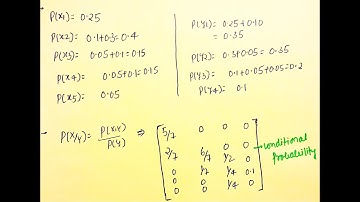 P(x1) = 0.25
P(x2) = 0.1+0.3 = 0.4
P(x3) = 0.05+0.1 = 0.15
P(x4) = 0.05+0.1 = 0.15
P(x5) = 0.05
P(Y1) = 0.25+0.10
= 0.35
P(Y2) = 0.3+0.05 = 0.35
P(Y3) = 0.1+0.05+0.05 = 0.2
P(Y4) = 0.1
- P(X/Y) = P(X,Y) / P(Y) ⇒
5/7 0 0 0
2/7 6/7 1/2 0
0 1/7 1/4 0.1
0 0 1/4 0
conditional
probability